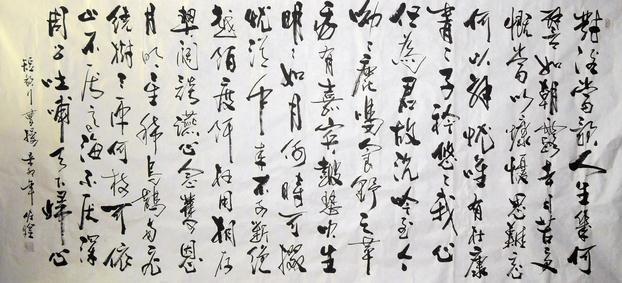 對酒當歌人生幾何
譬如朝露去日苦多
慨當以慷憂思難忘
何以解憂唯有杜康
青々子衿悠々我心
但為君故沈吟至今
呦々鹿鳴食野之苹
我有嘉賓鼓瑟吹笙
明々如月何時可掇
憂從中來不可斷絕
越陌度阡枉用相存
契闊談讌心念舊恩
月明星稀烏鵲南飛
繞樹三匝何枝可依
山不厭高海不厭深
周公吐哺天下歸心
短歌行曹操